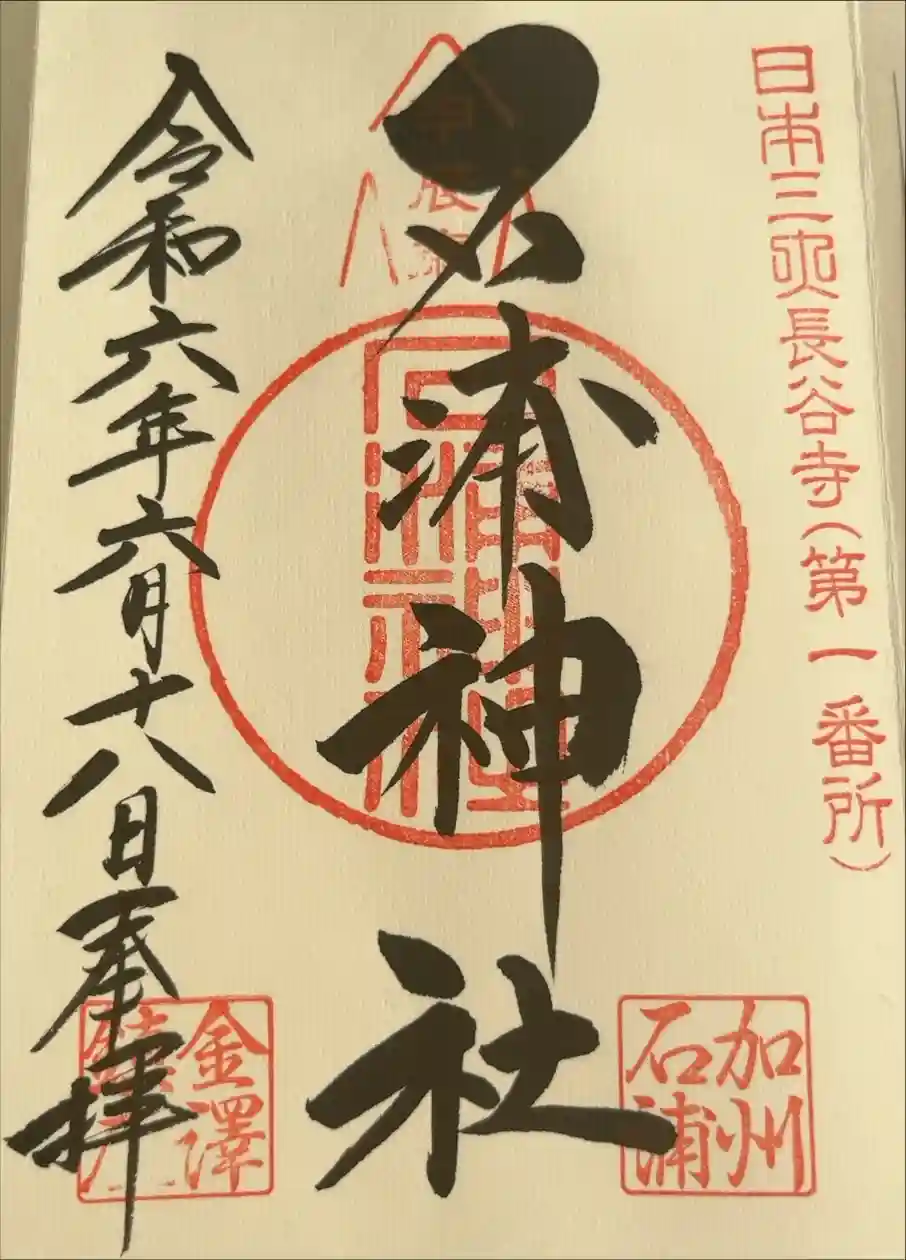 日本三大長谷寺(第一番所)
石浦神社
石浦神社
加州
石浦
令和六年六月十八日奉拝
金澤